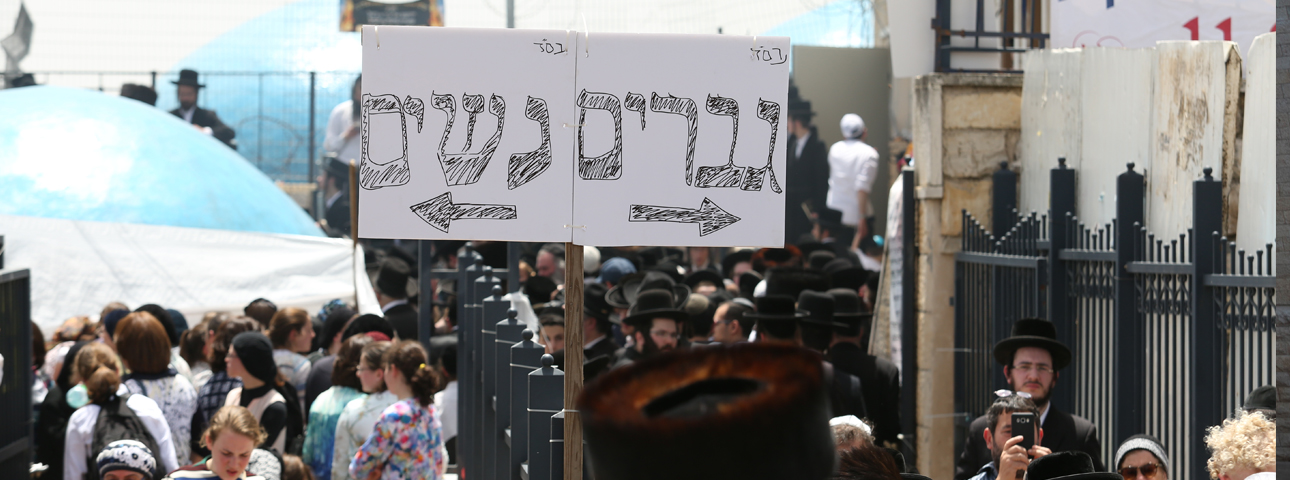 בס"ד
גברים
בס"ד
נשים
11